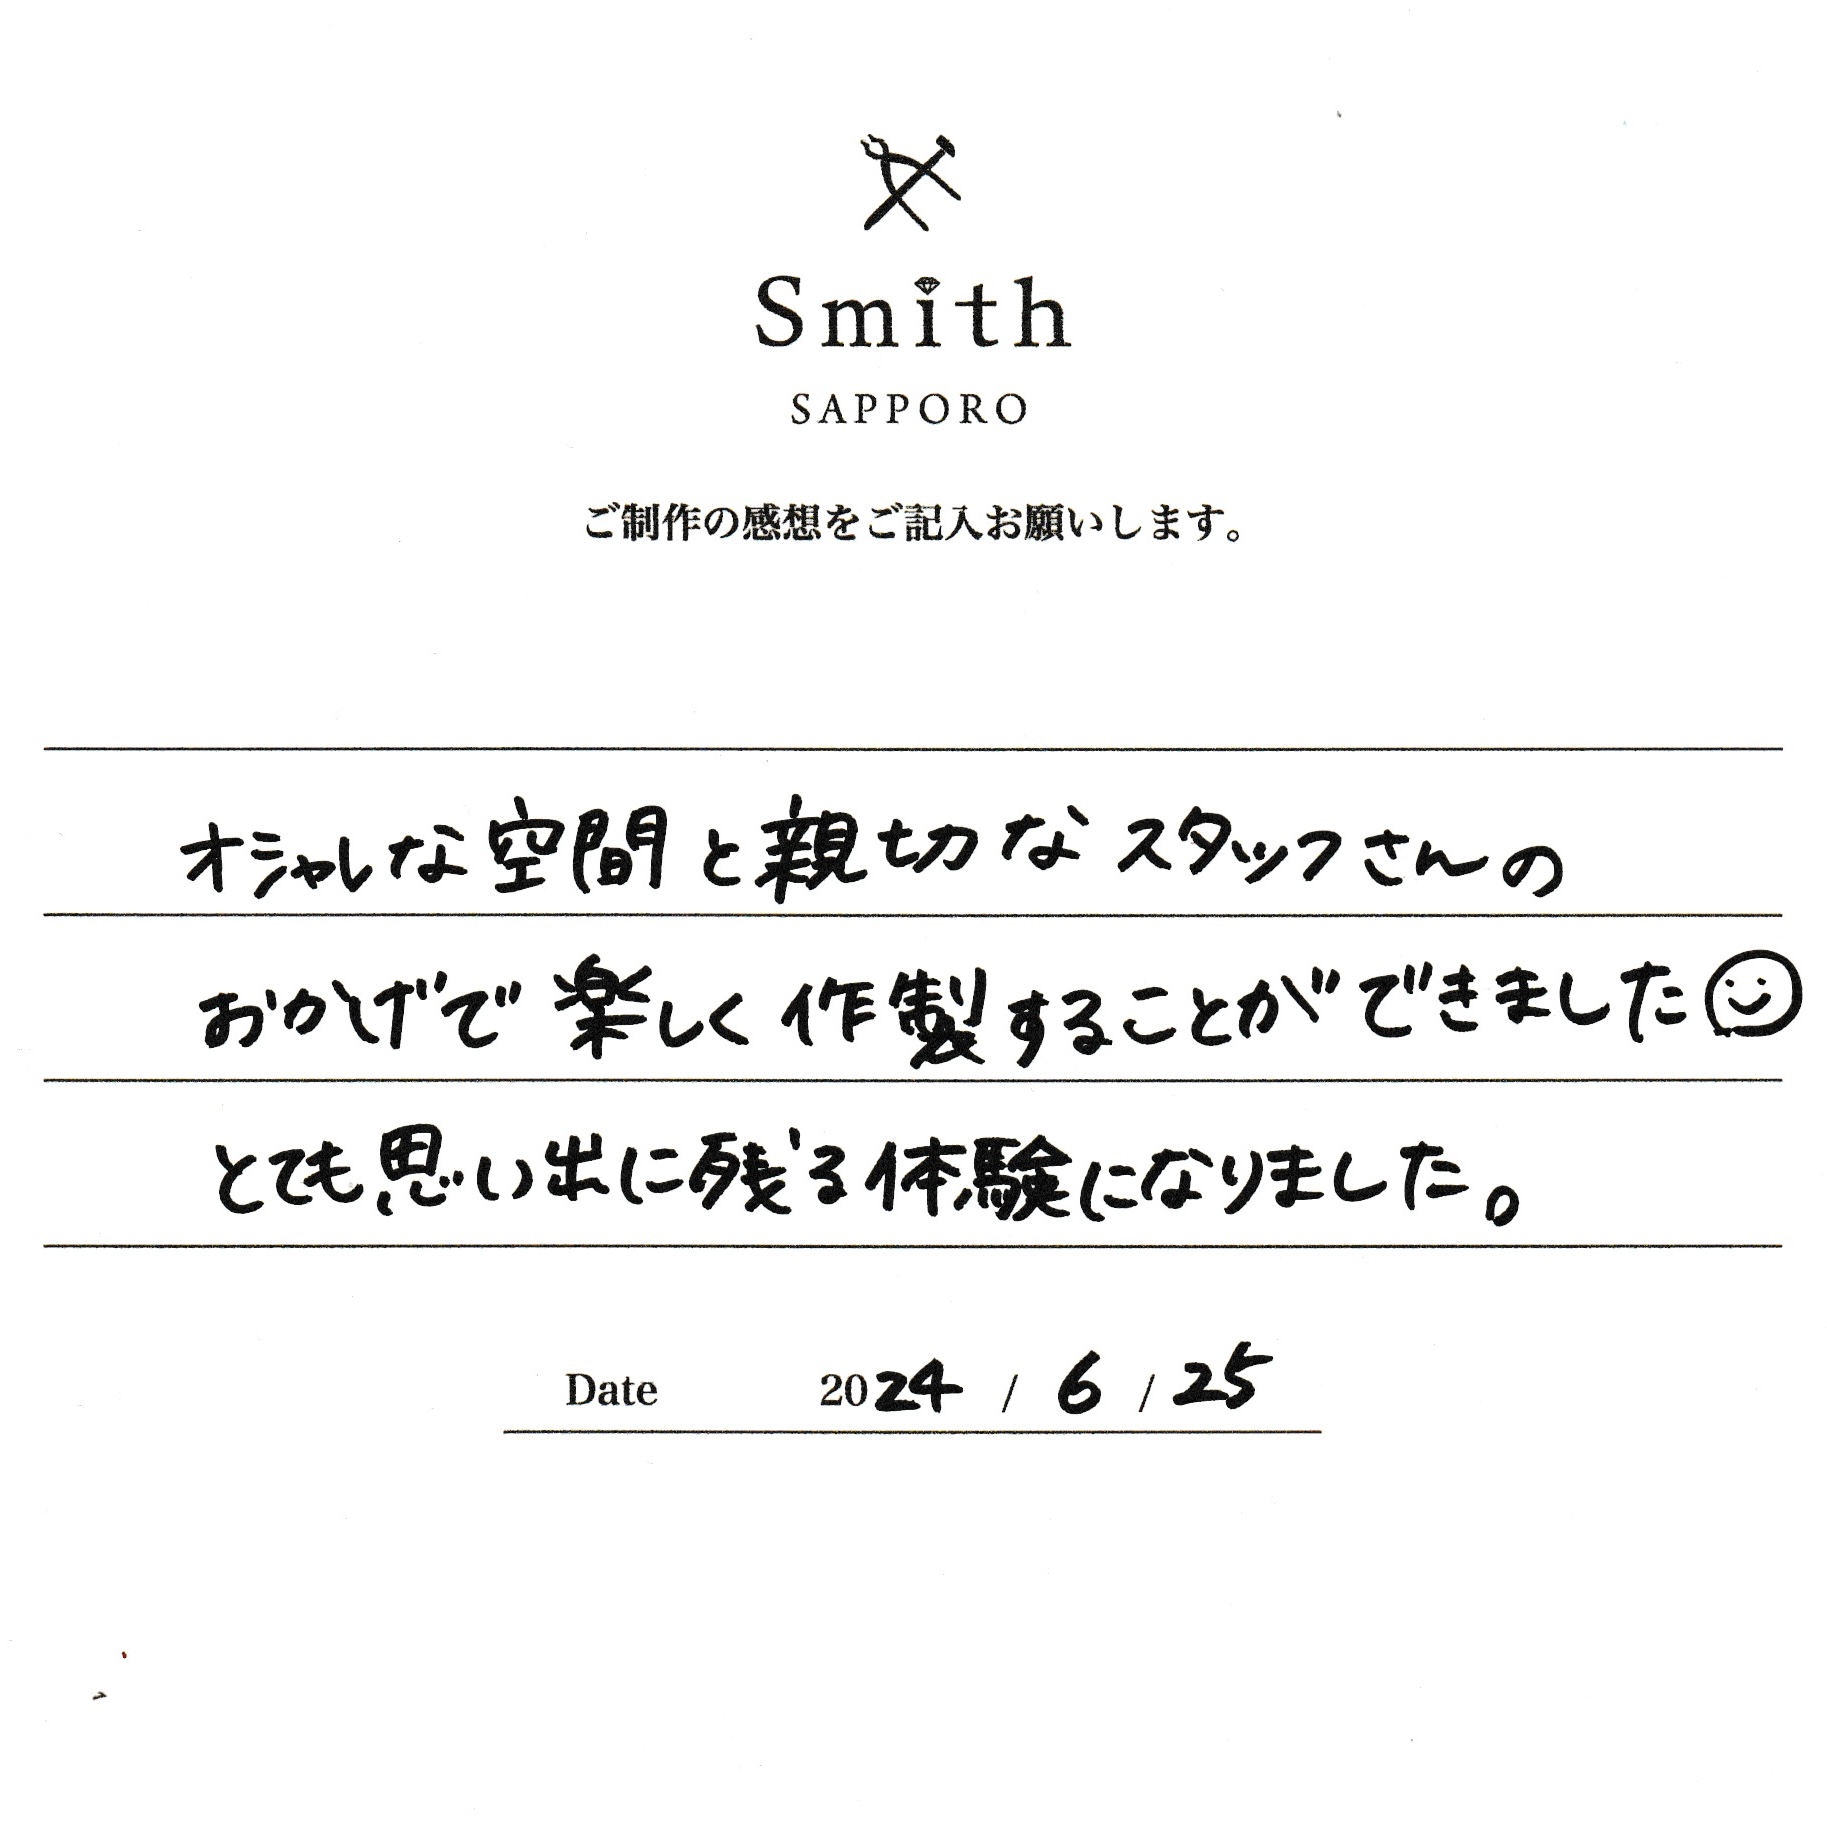 Smith
SAPPORO
ご制作の感想をご記入お願いします。
オシャレな空間と親切なスタッフさんの
おかげで楽しく作製することができました
とても思い出に残る体験になりました。
Date 2024 / 6 / 25